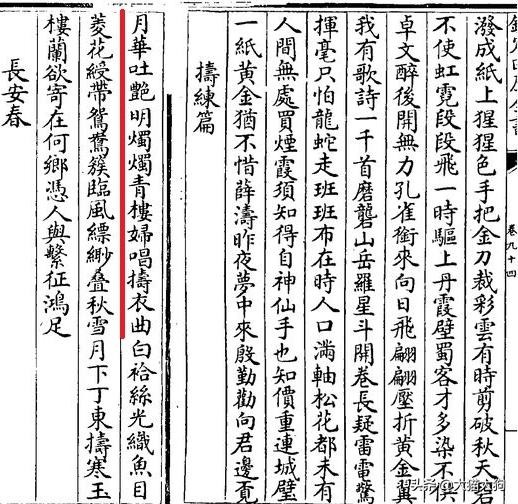 卷九十四
潑成紙上猩猩色手把金刀裁彩雲有時剪破秋天碧
不使虹霓段段飛一時驅上丹霞壁蜀客才多染不供
卓文醉後開無力孔雀銜來向日飛翩翩壓折黃金翼
我有歌詩一千首磨礲山岳羅星斗開卷長疑雷雷驚
揮毫只怕龍蛇走班班布在時人口滿軸松花都未有
人間無處買煙霞須知得自神仙手也知價重連城壁
一紙黃金猶不惜薛濤昨夜夢中來殷勤勸向君邊覓
擣練篇
月華吐艷明燭燭青樓婦唱擣衣曲白袷絲光織魚目
菱花綬帶鴛鴦簇臨風縹緲叠秋雪月下丁東擣寒玉
樓蘭欲寄在何鄉憑人與繫征鴻足
長安春
头条 @大猫大狗